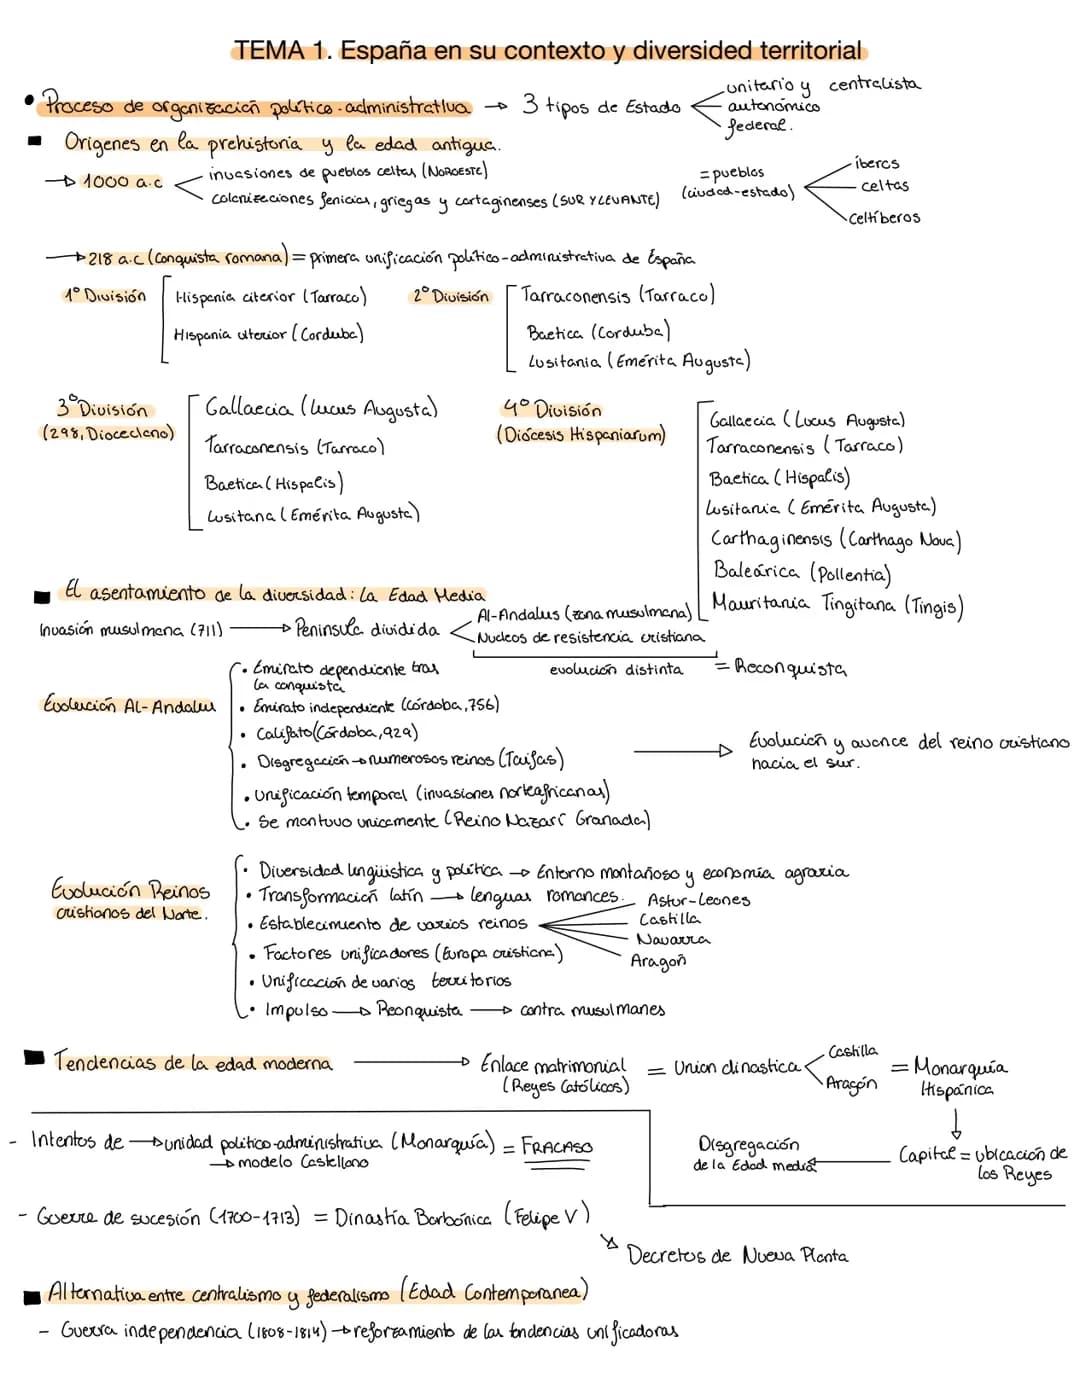 TEMA 1. España en su contexto y diversided territorial
• Proceso de organización político-administrativa → 3 tipos de Estado
unitario y centralista
autonómico
federal.
Orígenes en la prehistoria y la edad antigua.
→ 1000 a.c
invasiones de pueblos celtas (NOROESTE)
colonizaciones fenicias, griegas y cartaginenses (SUR Y LEVANTE)
= pueblos
(ciudad-estado)
íberos
celtas
Celtíberos
→ 218 a.c (Conquista romana) = primera unificación político-administrativa de España
1º División
Hispania citerior (Tarraco)
Hispania ulterior (Corduba)
2º División
Tarraconensis (Tarraco)
Baetica (Corduba)
Lusitania (Emérita Augusta)
3º División
(298, Diocecleno)
Gallaecia (Lucus Augusta)
Tarraconensis (Tarraco)
Baetica (Hispalis)
Lusitana (Emérita Augusta)
4º División
(Diócesis Hispaniarum)
Gallaecia (Lucus Augusta)
Tarraconensis (Tarraco)
Baetica (Hispalis)
Lusitania (Emérita Augusta)
Carthaginensis (Carthago Nova)
Baleárica (Pollentia)
Mauritania Tingitana (Tingis)
El asentamiento de la diversidad: La Edad Media
Invasión musulmana (711) → Península dividida
Al-Andalus (zona musulmana)
Nucleos de resistencia cristiana
evolución distinta = Reconquista
Evolución Al-Andalus
• Emirato dependiente tras
la conquista
• Emirato independiente (Córdoba, 756)
• Califato (Córdoba, 929)
• Disgregación → numerosos reinos (Taifas)
• Unificación temporal (invasiones norteafricanas)
• Se mantuvo unicamente (Reino Nazarí Granada)
→ Evolución y avance del reino cristiano
hacia el sur.
Evolución Reinos
cristianos del Norte.
• Diversidad lingüistica y política → Entorno montañoso y economía agraria
• Transformación latín → lenguas romances.
• Establecimiento de varios reinos
Astur-Leones
Castilla
Navarra
Aragoñ
• Factores unificadores (Europa cristiana)
• Unificación de varios territorios
• Impulso → Reonquista → contra musulmanes
Tendencias de la edad moderna → Enlace matrimonial
(Reyes Católicos)
= Union dinastica
Castilla
Aragón
= Monarquía
Hispánica
Capital = ubicación de
los Reyes
Disgregación
de la Edad media
- Intentos de → unidad politico-administrativa (Monarquía) = FRACASO
→ modelo Castellano
- Guerra de sucesión (1700-1713) = Dinastía Borbónica (Felipe V)
Decretos de Nueva Planta
Alternativa entre centralismo y federalismo (Edad Contemporanea)
- Guerra independencia (1808-1814) → reforzamiento de las tendencias unificadoras